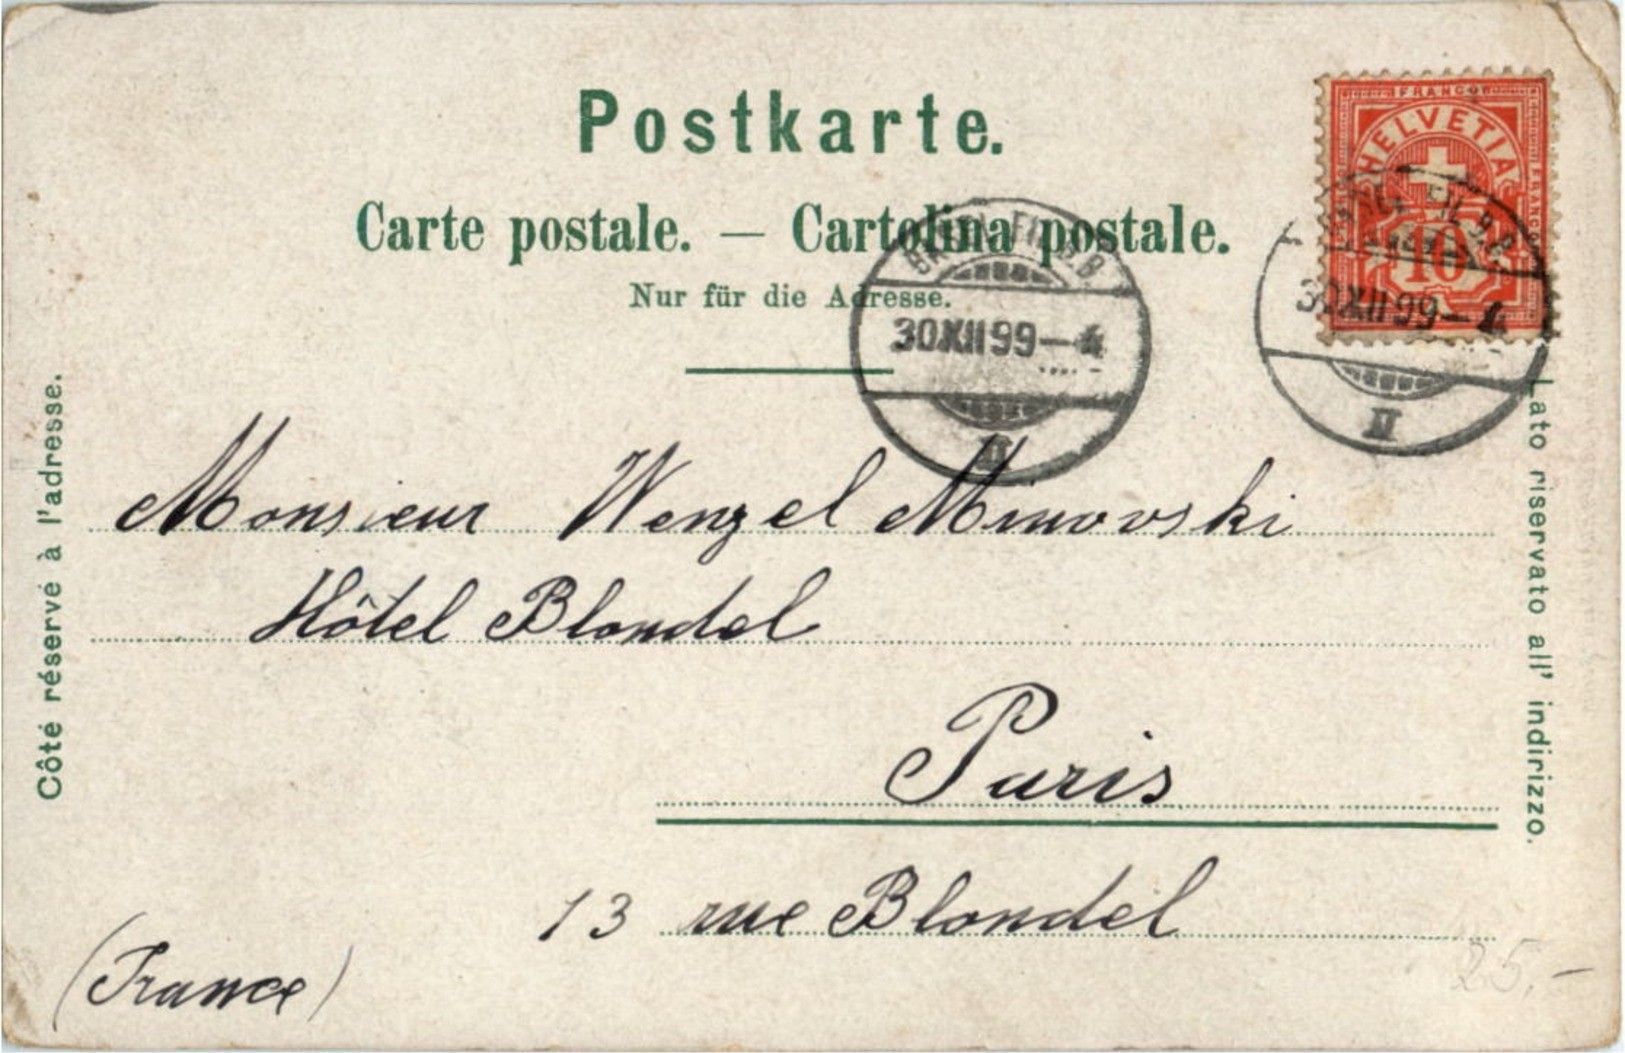 Postkarte.
FRANCO
HELVETIA
FRANCO
10
Carte postale. — Cartolina postale.
Nur für die Adresse.
30 XII 99 — 4
II
30 XII 99 — 4
II
Côté réservé à l'adresse.
Lato riservato all' indirizzo.
Monsieur Wenzel Minovski
Hôtel Blondel
Paris
13 rue Blondel
(France)
25.-